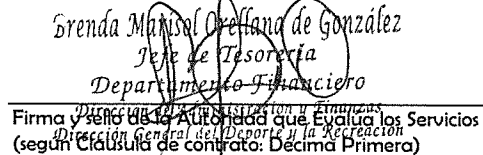 Brenda Marisol Orellana de González
Jefe de Tesorería
Departamento Financiero
Dirección de Administración y Finanzas
Firma y sello de la Autoridad que Evalúa los Servicios
Dirección General del Deporte y la Recreación
(según Cláusula de contrato: Décima Primera)